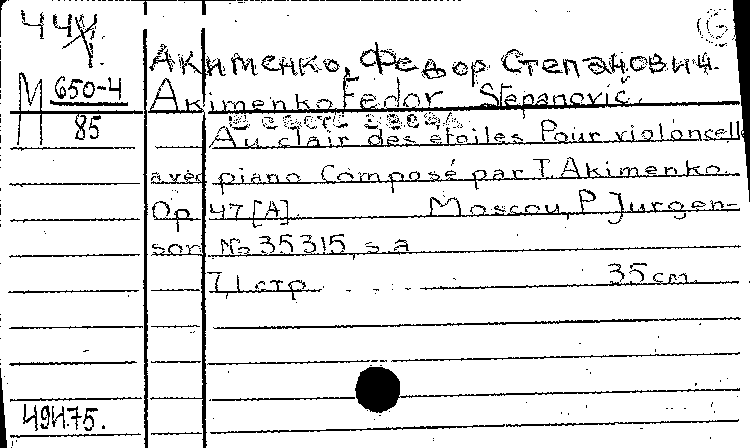 44У
М 650-4
85
Акименко, Федор Степанович.
Akimenko Fedor Stepanovič.
Au clair des étoiles Pour violoncelle
avec piano Composé par T. Akimenko
Op 47 [A]. Moscou, P Jurgen-
son № 35315, s.a
7,1 стр. 35 см.
49И75.